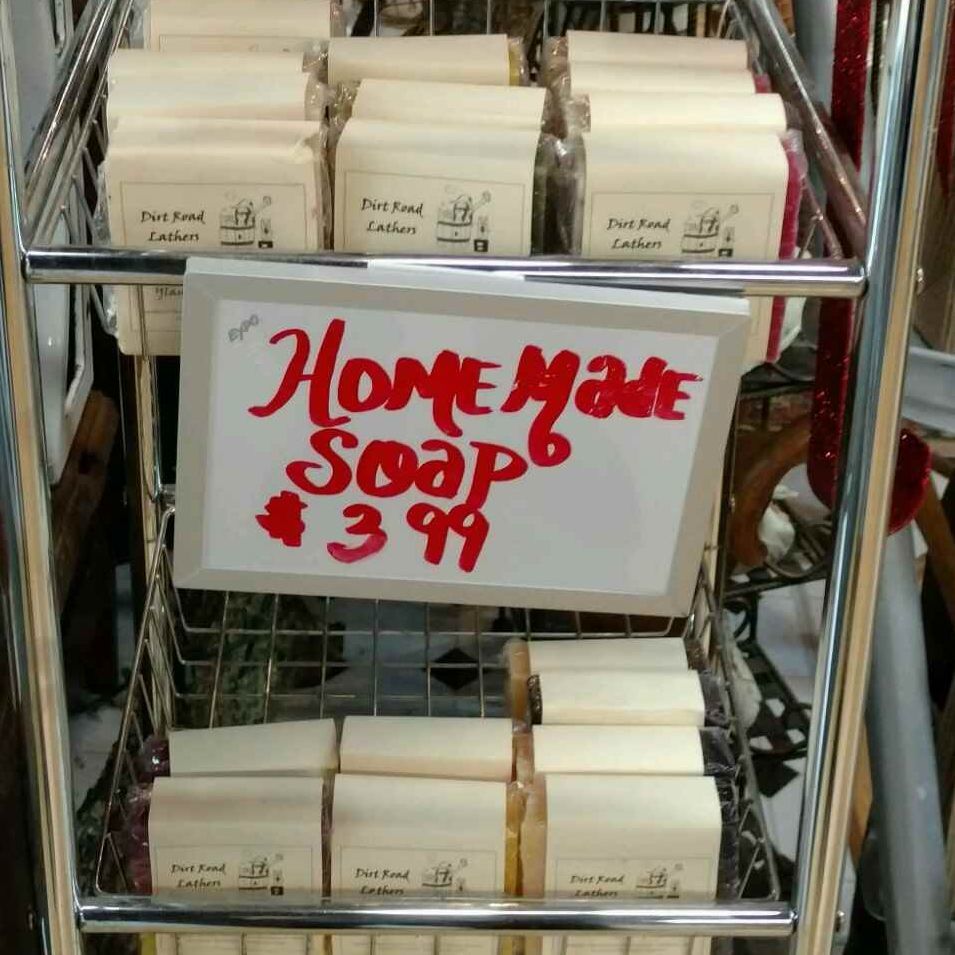 Dirt Road
Lathers
Dirt Road
Lathers
Dirt Road
Lathers
EXPO
HOMEMADE
SOAP
$ 3 99
Dirt Road
Lathers
Dirt Road
Lathers
Dirt Road
Lathers